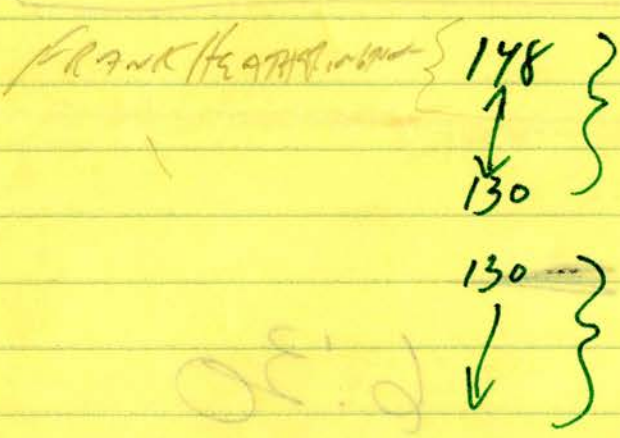 FRANK HEATHERINGTON { 148 }
130
130 }
6:30